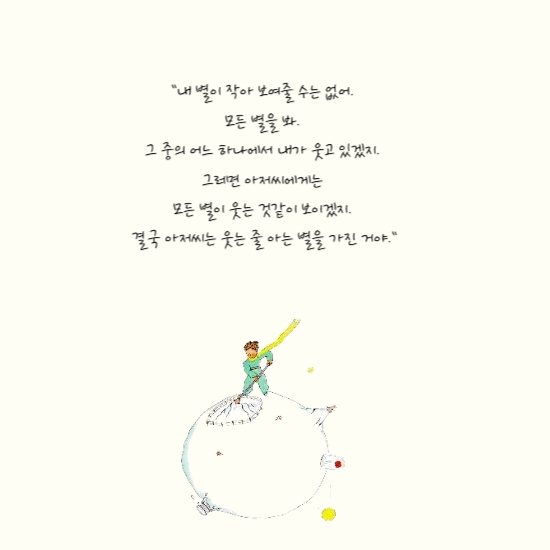 "내 별이 작아 보여줄 수는 없어.
모든 별을 봐.
그 중의 어느 하나에서 내가 웃고 있겠지.
그러면 아저씨에게는
모든 별이 웃는 것같이 보이겠지.
결국 아저씨는 웃는 줄 아는 별을 가진 거야."